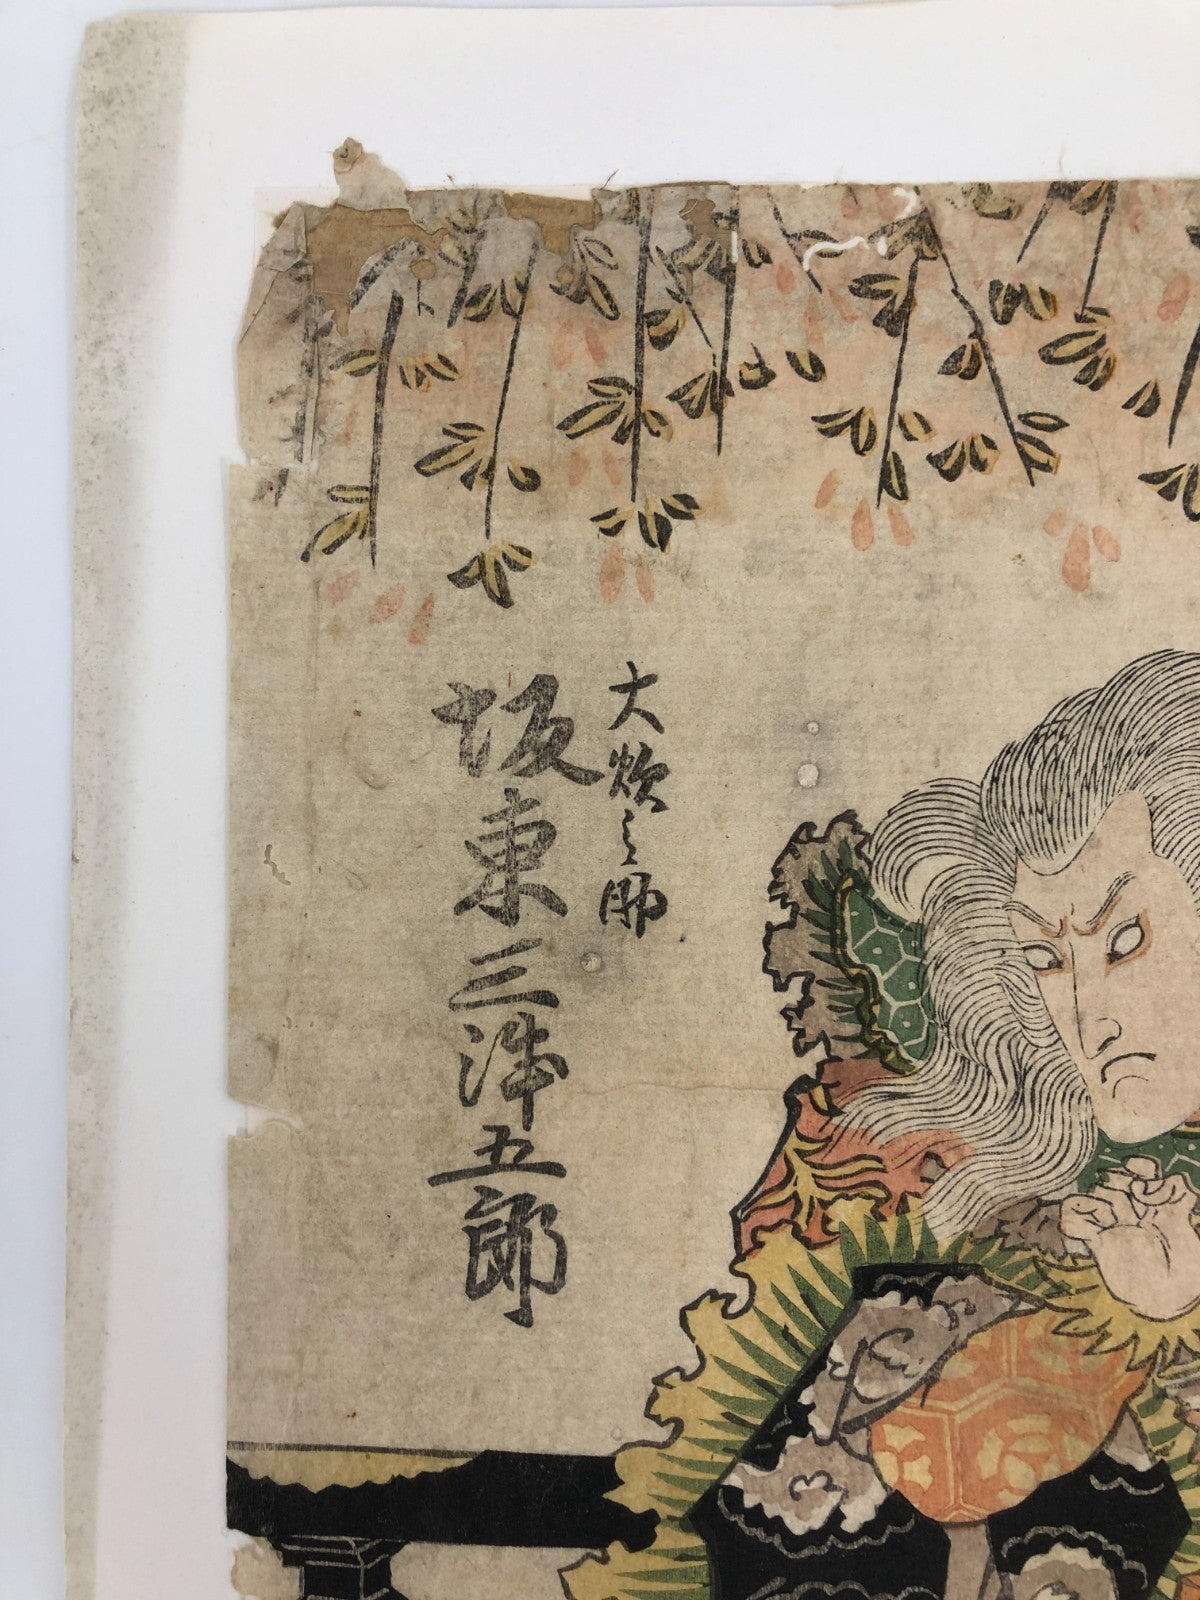 大炊之助
坂東三津五郎